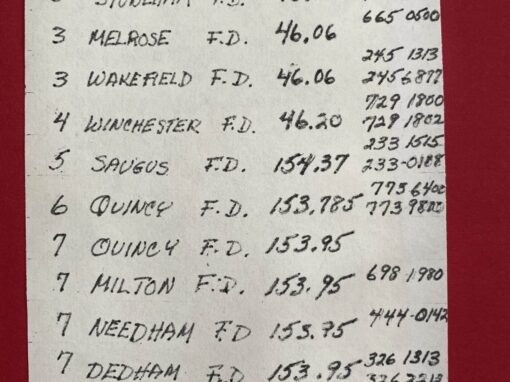 F.D.
665 0500
3 MELROSE F.D. 46.06
245 1313
3 WAKEFIELD F.D. 46.06 245 6877
729 1800
4 WINCHESTER F.D. 46.20 729 1802
233 1515
5 SAUGUS F.D. 154.37 233-0188
773 6400
6 QUINCY F.D. 153.785
7 QUINCY F.D. 153.95
7 MILTON F.D. 153.95 698 1980
444-0142
7 NEEDHAM F.D 153.75
7 DEDHAM F.D. 153.95 326 1313